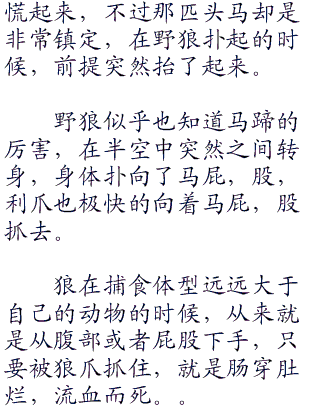 慌起来，不过那匹头马却是
非常镇定，在野狼扑起的时
候，前提突然抬了起来。
野狼似乎也知道马蹄的
厉害，在半空中突然之间转
身，身体扑向了马屁，股，
利爪也极快的向着马屁，股
抓去。
狼在捕食体型远远大于
自己的动物的时候，从来就
是从腹部或者屁股下手，只
要被狼爪抓住，就是肠穿肚
烂，流血而死。。